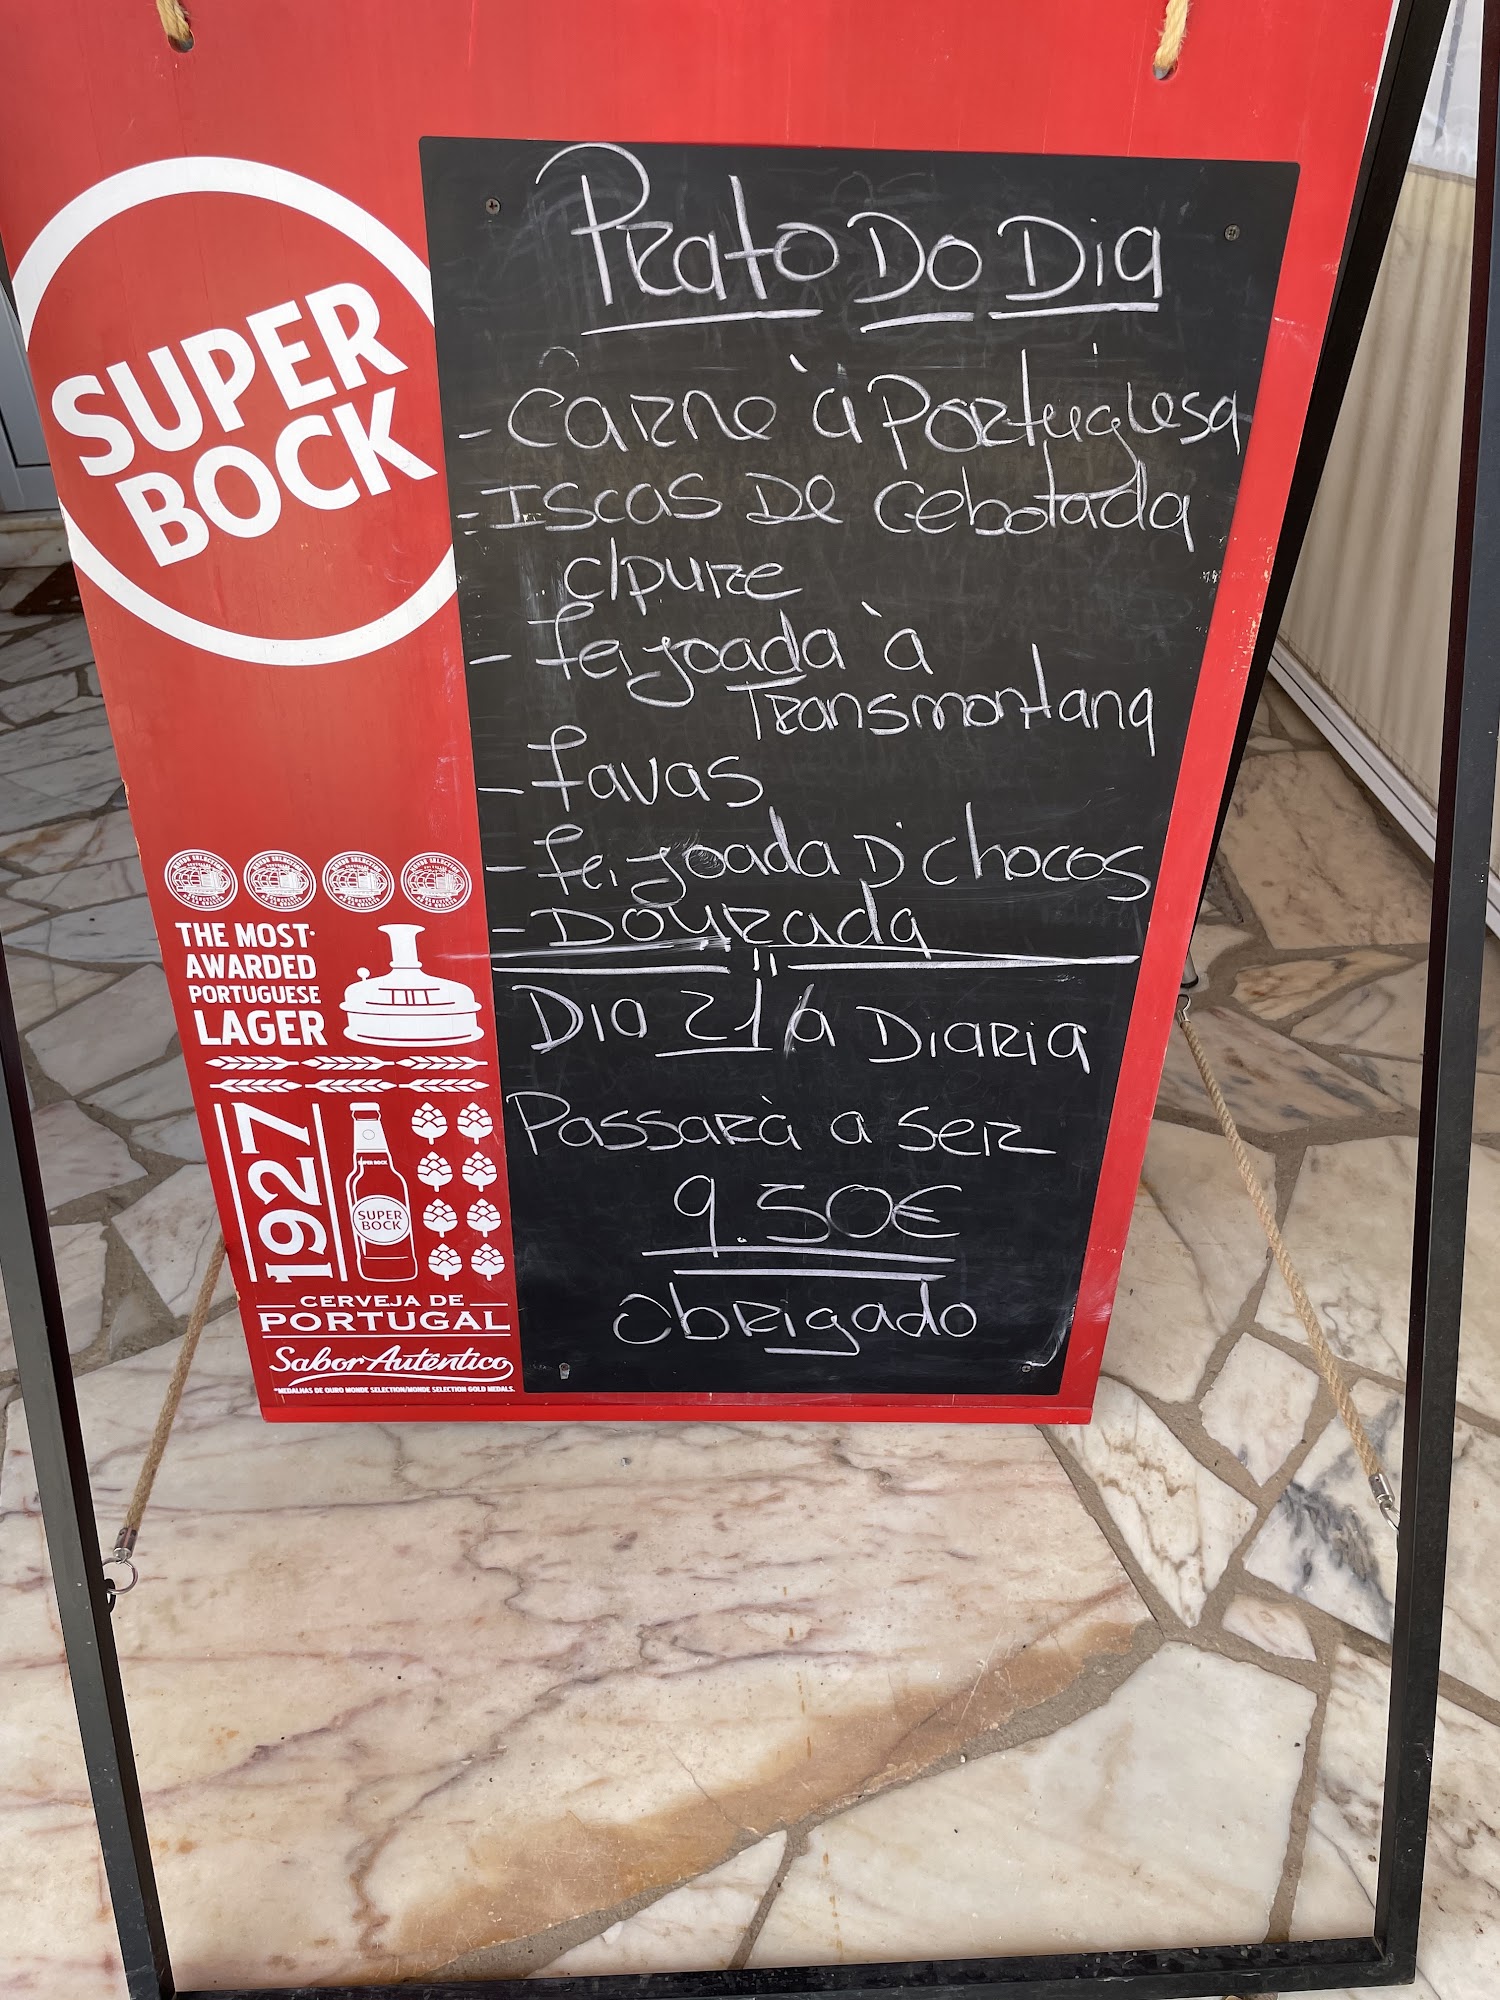 SUPER
BOCK
Prato Do Dia
- Carne à Portuguesa
- Iscas De Cebolada
c/pure
- feijoada à
Transmontana
- favas
- feijoada D'chocos
- Dourada
Dia 21/a Diaria
Passarà a ser
9.50€
obrigado
THE MOST
AWARDED
PORTUGUESE
LAGER
1927
SUPER BOCK
SUPER
BOCK
CERVEJA DE
PORTUGAL
Sabor Autêntico
*MEDALHAS DE OURO MONDE SELECTION/MONDE SELECTION GOLD MEDALS.